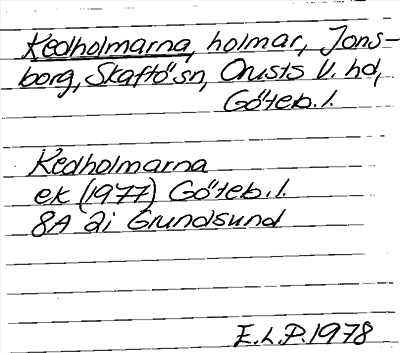 Kedholmarna, holmar, Jons-
borg, Skaftö sn, Orusts V. hd,
Göteb. l.
Kedholmarna
ek (1977) Göteb. l.
8A 2i Grundsund
E.L.P. 1978